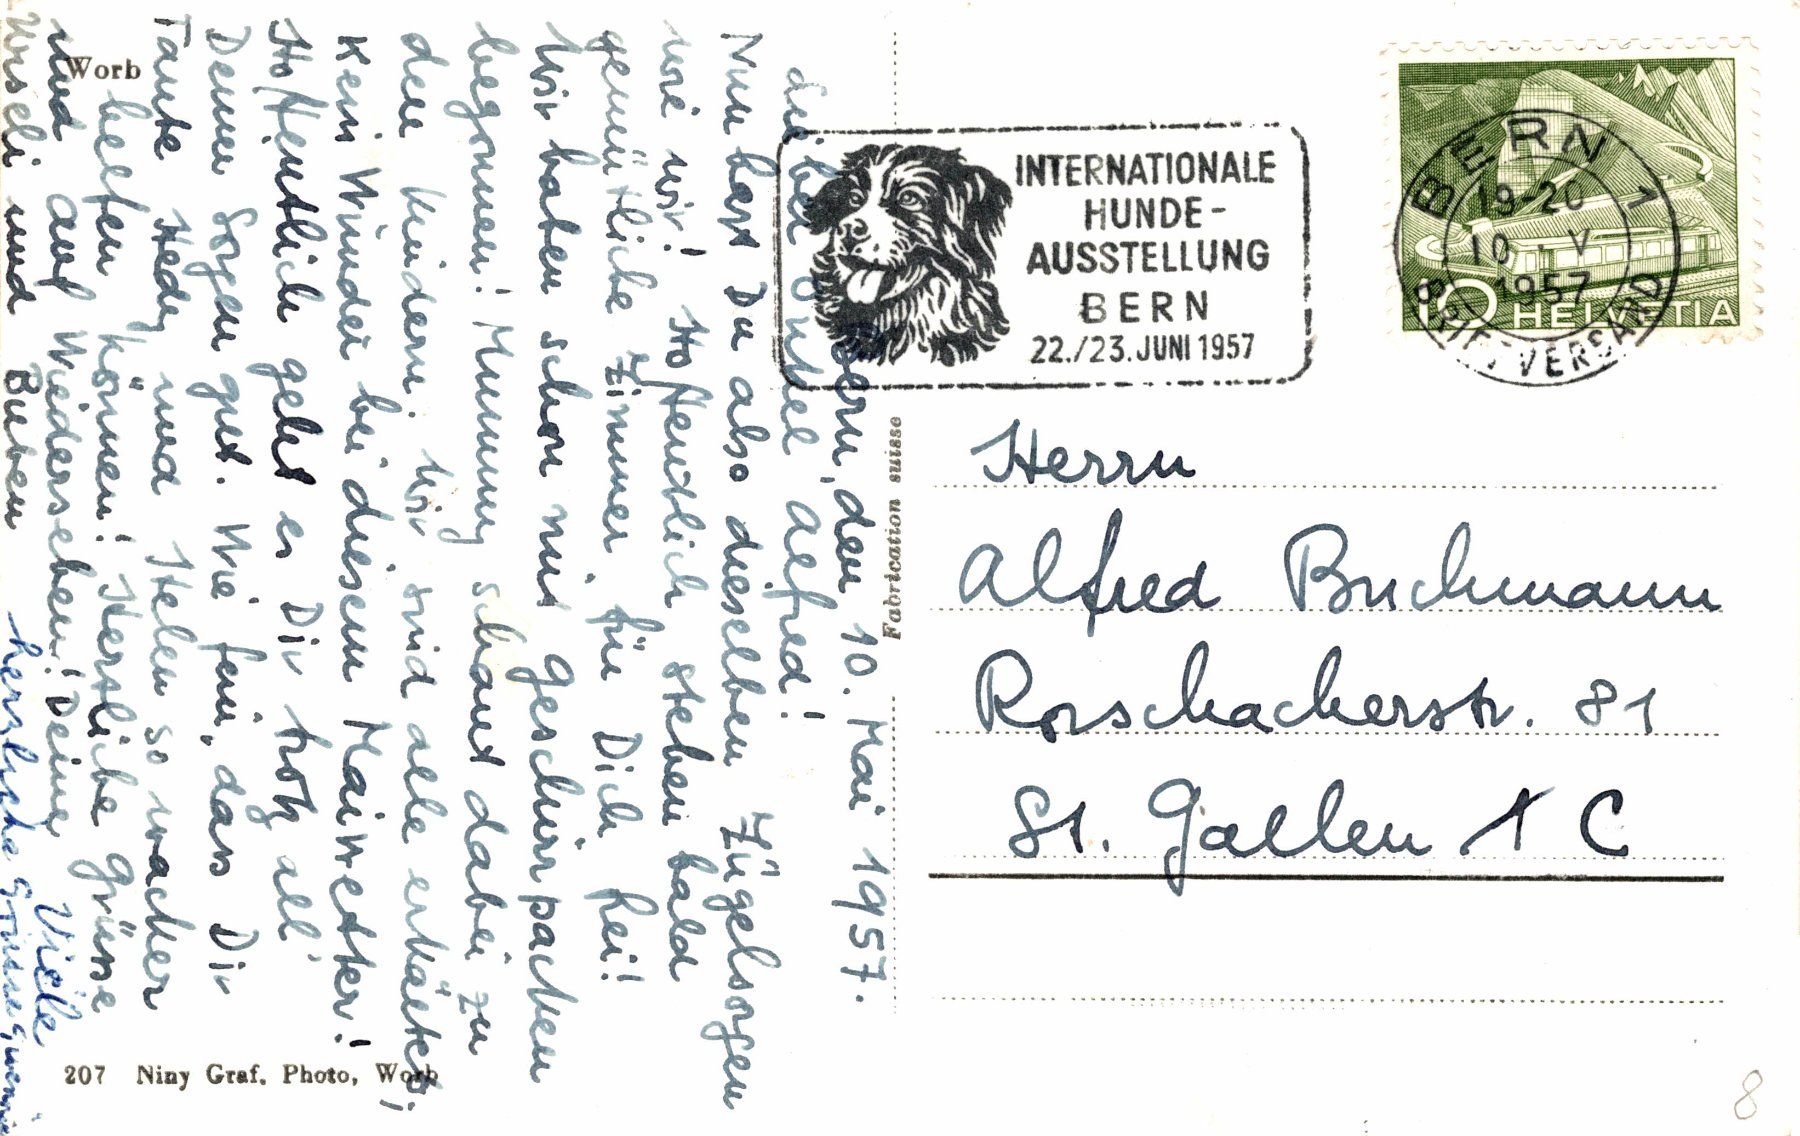 Worb
Bern, den 10. Mai 1957.
Lieber Onkel Alfred!
Nun hast Du also dieselben Zügelsorgen
wie wir! Hoffentlich stehen bald
gemütliche Zimmer für Dich frei!
Wir haben schon mit Geschirrpacken
begonnen! Mummy schaut dabei zu
den Kindern. Wir sind alle erkältet;
Kein Wunder bei diesem Maiwetter!
Hoffentlich geht es Dir trotz all'
Deinen Sorgen gut. Wie fein, dass Dir
Tante Hedy und Helen so wacker
helfen können! Herzliche Grüsse
und auf Wiedersehen! Deine
Urseli und Buben
Viele
herzliche Grüsse,
207 Niny Graf. Photo, Worb
Fabrication suisse
INTERNATIONALE
HUNDE-
AUSSTELLUNG
BERN
22./23. JUNI 1957
BERN 1
19-20
10. V
1957
BRIEFVERSAND
10 HELVETIA
Herrn
Alfred Buchmann
Rorschacherstr. 81
St. Gallen 1 C
8